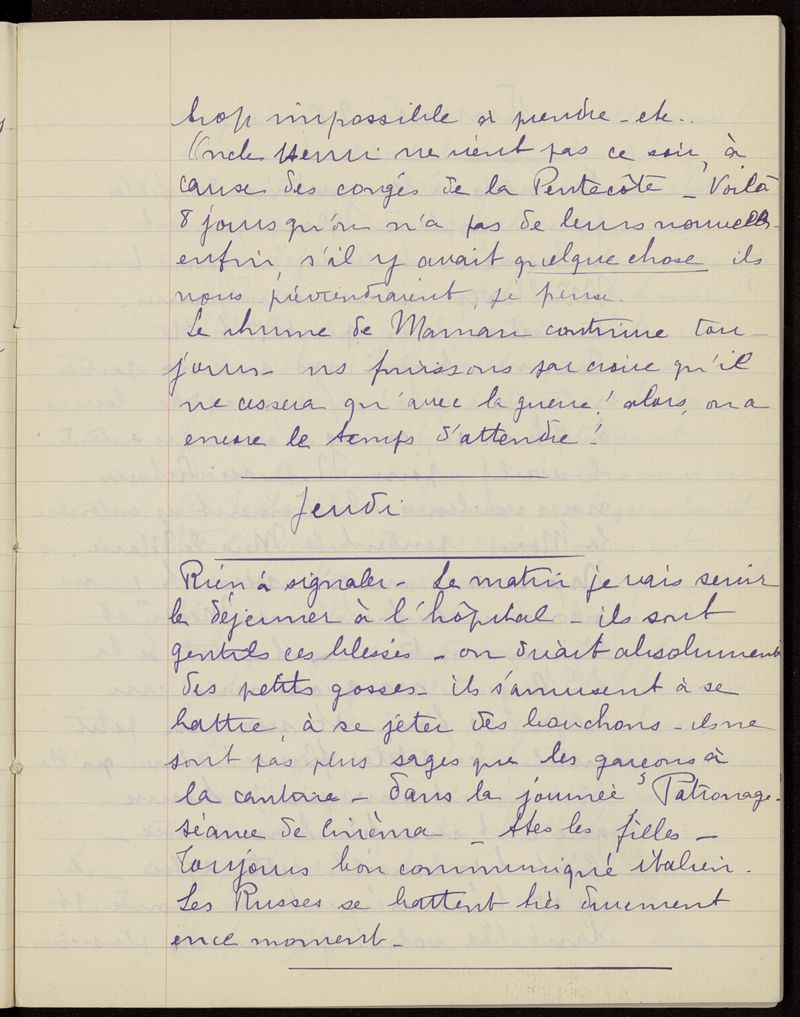 trop impossible à prendre - etc..
Oncle Henri ne vient pas ce soir, à
cause des congés de la Pentecôte - Voilà
8 jours qu'on n'a pas de leurs nouvelles -
enfin, s'il y avait quelque chose ils
nous préviendraient, je pense.
Le rhume de Maman continue tou-
jours - ns finissons par croire qu'il
ne cessera qu'avec la guerre! alors, on a
encore le temps d'attendre!
Jeudi
Rien à signaler - Le matin je vais servir
le déjeuner à l'hôpital - ils sont
gentils ces blessés - on dirait absolument
des petits gosses - ils s'amusent à se
battre, à se jeter des bouchons - ils ne
sont pas plus sages que les garçons à
la cantine - dans la journée, Patronage.
séance de cinéma - ttes les filles -
Toujours bon communiqué italien.
Les Russes se battent très durement
en ce moment -